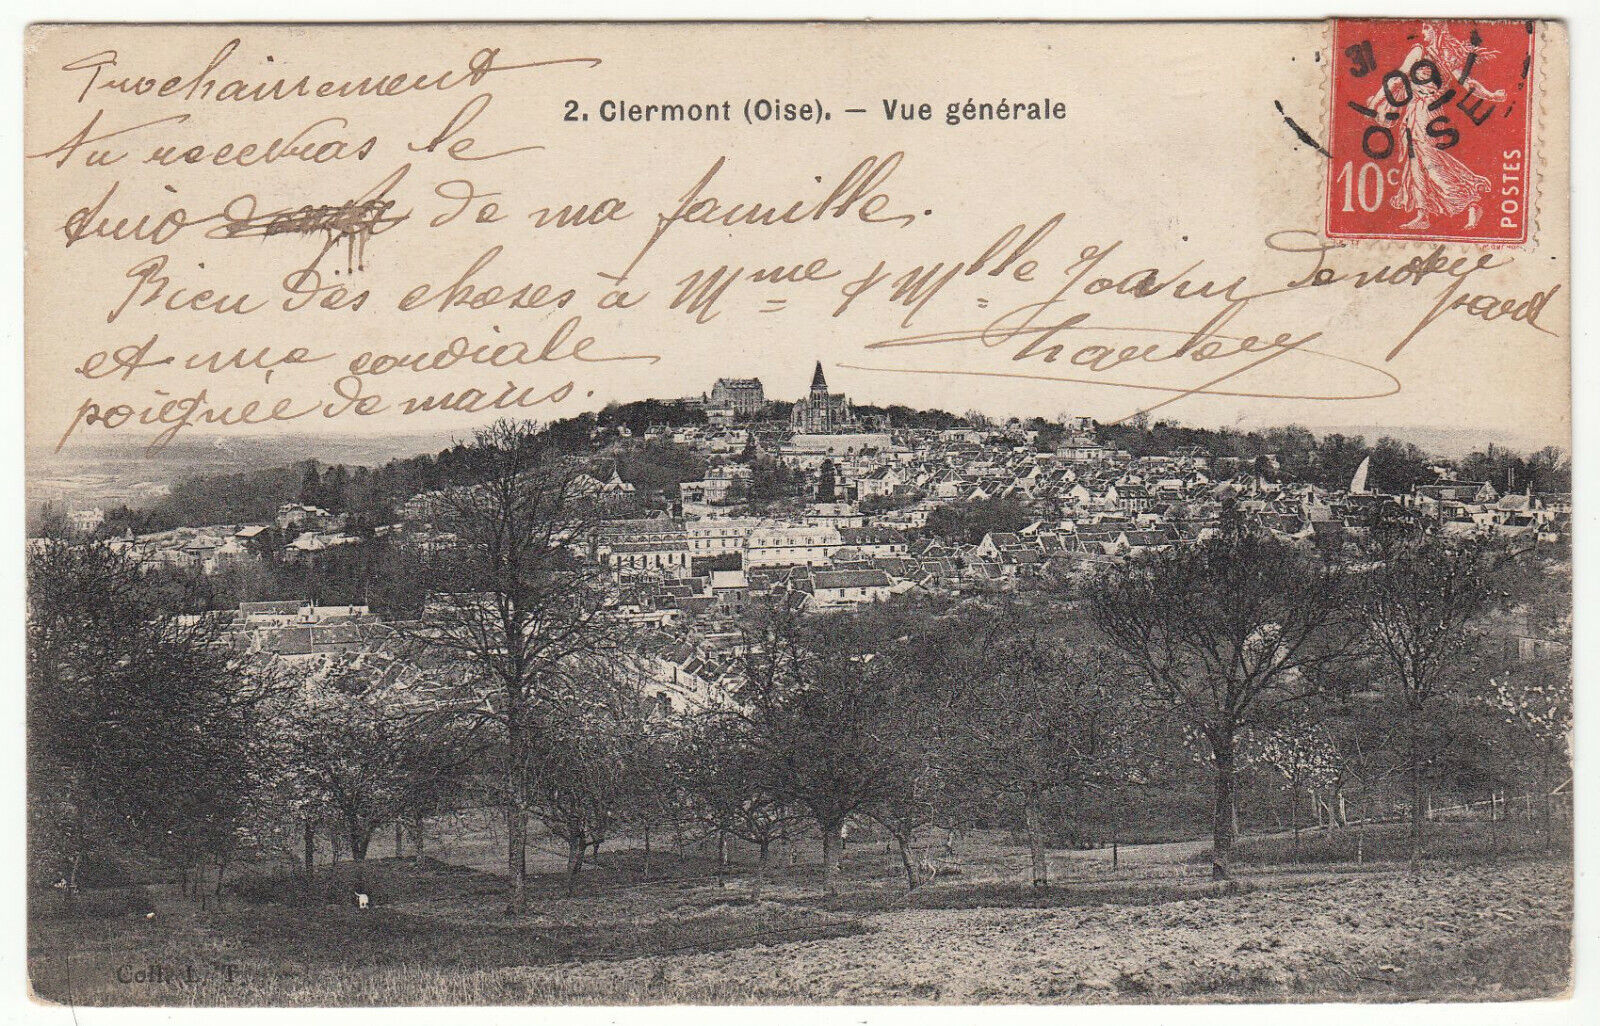 Prochainement
2. Clermont (Oise). — Vue générale
tu recevras le
trio de ma famille.
Bien des choses à Mme & Mlle de notre part
et une cordiale
poignée de mains.
31
-09
OISE
10c
POSTES
Coll. L. T.